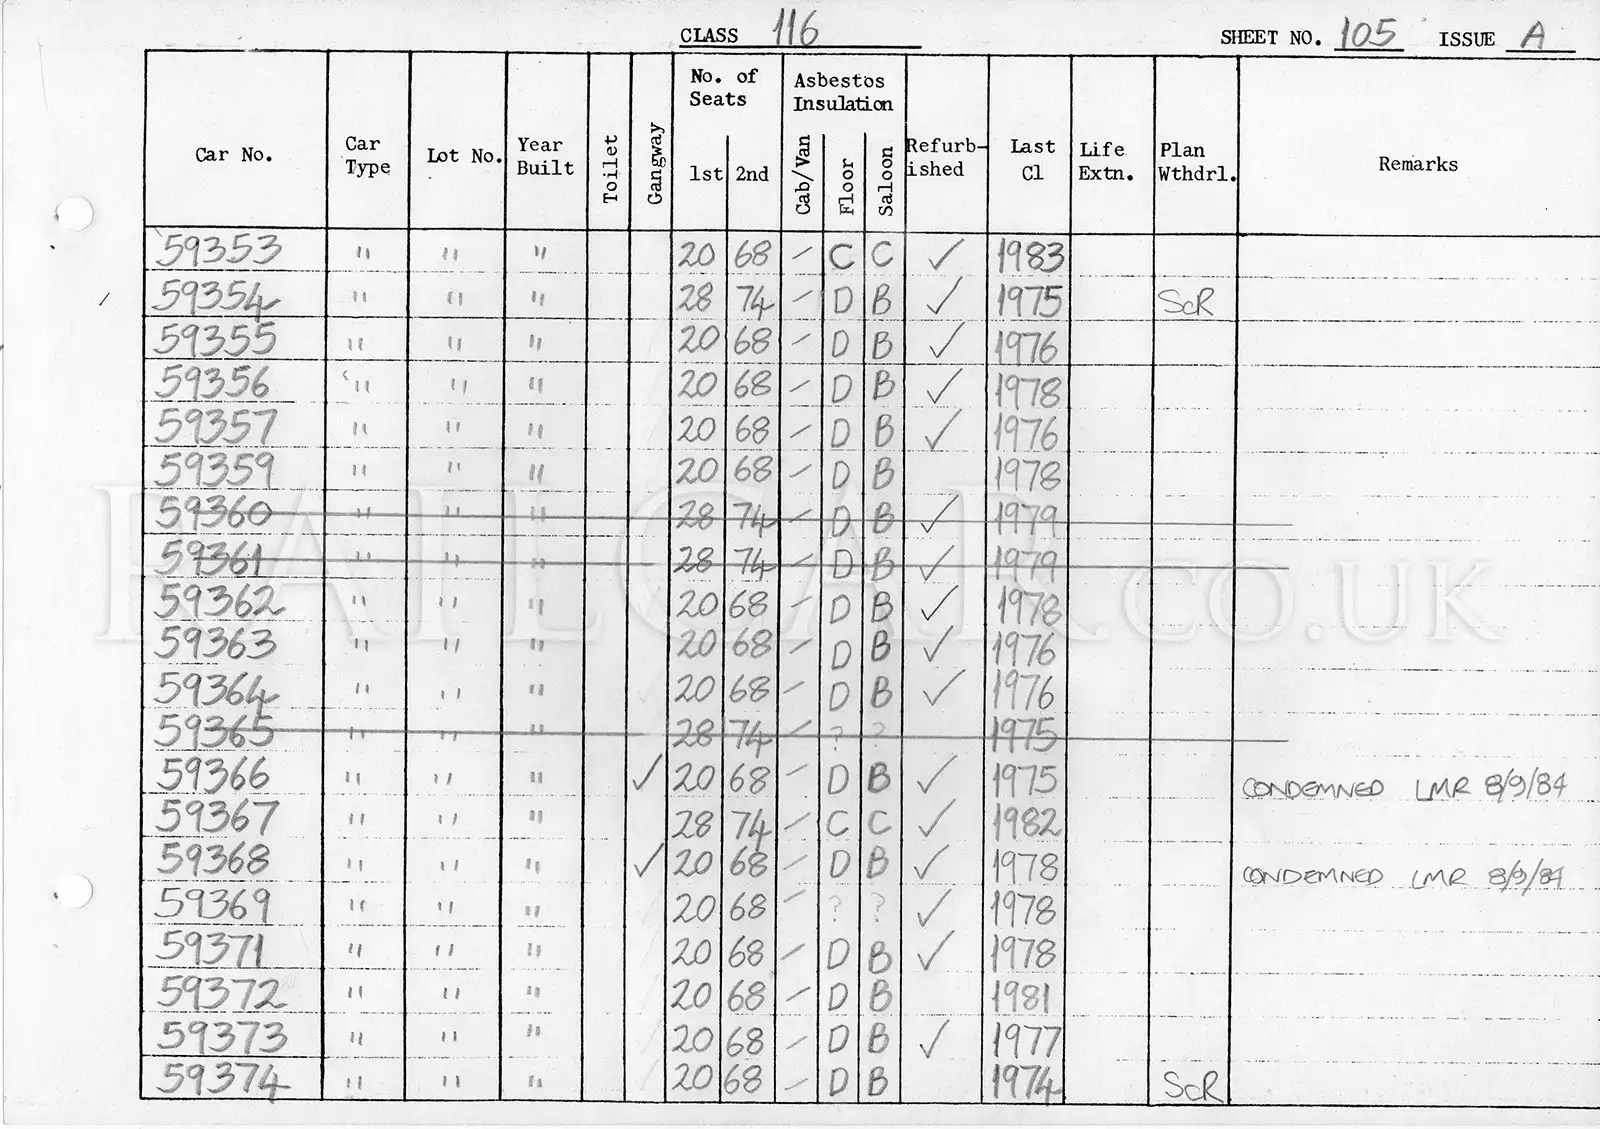 CLASS 116 SHEET NO. 105 ISSUE A
Car No. Car Type Lot No. Year Built Toilet Gangway No. of Seats 1st 2nd Asbestos Insulation Cab/Van Floor Saloon Refurb-ished Last Cl Life Extn. Plan Wthdrl. Remarks
59353 " " " 20 68 / C C ✓ 1983
/ 59354 " " " 28 74 / D B ✓ 1975 ScR
59355 " " " 20 68 / D B ✓ 1976
59356 " " " 20 68 / D B ✓ 1978
59357 " " " 20 68 / D B ✓ 1976
59359 " " " 20 68 / D B 1978
59360 " " " 28 74 / D B ✓ 1979
59361 " " " 28 74 / D B ✓ 1979
59362 " " " 20 68 / D B ✓ 1978
59363 " " " 20 68 / D B ✓ 1976
59364 " " " 20 68 / D B ✓ 1976
59365 " " " 28 74 / ? ? 1975
59366 " " " ✓ 20 68 / D B ✓ 1975 CONDEMNED LMR 8/9/84
59367 " " " 28 74 / C C ✓ 1982
59368 " " " ✓ 20 68 / D B ✓ 1978 CONDEMNED LMR 8/9/84
59369 " " " 20 68 / ? ? ✓ 1978
59371 " " " 20 68 / D B ✓ 1978
59372 " " " 20 68 / D B 1981
59373 " " " 20 68 / D B ✓ 1977
59374 " " " 20 68 / D B 1974 ScR
RAILCAR.CO.UK